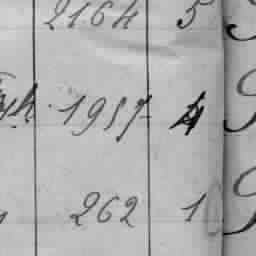 2164 5
1957 4
262 1